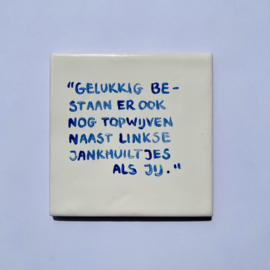 "GELUKKIG BE-
STAAN ER OOK
NOG TOPWIJVEN
NAAST LINKSE
JANKHUILTJES
ALS JIJ."